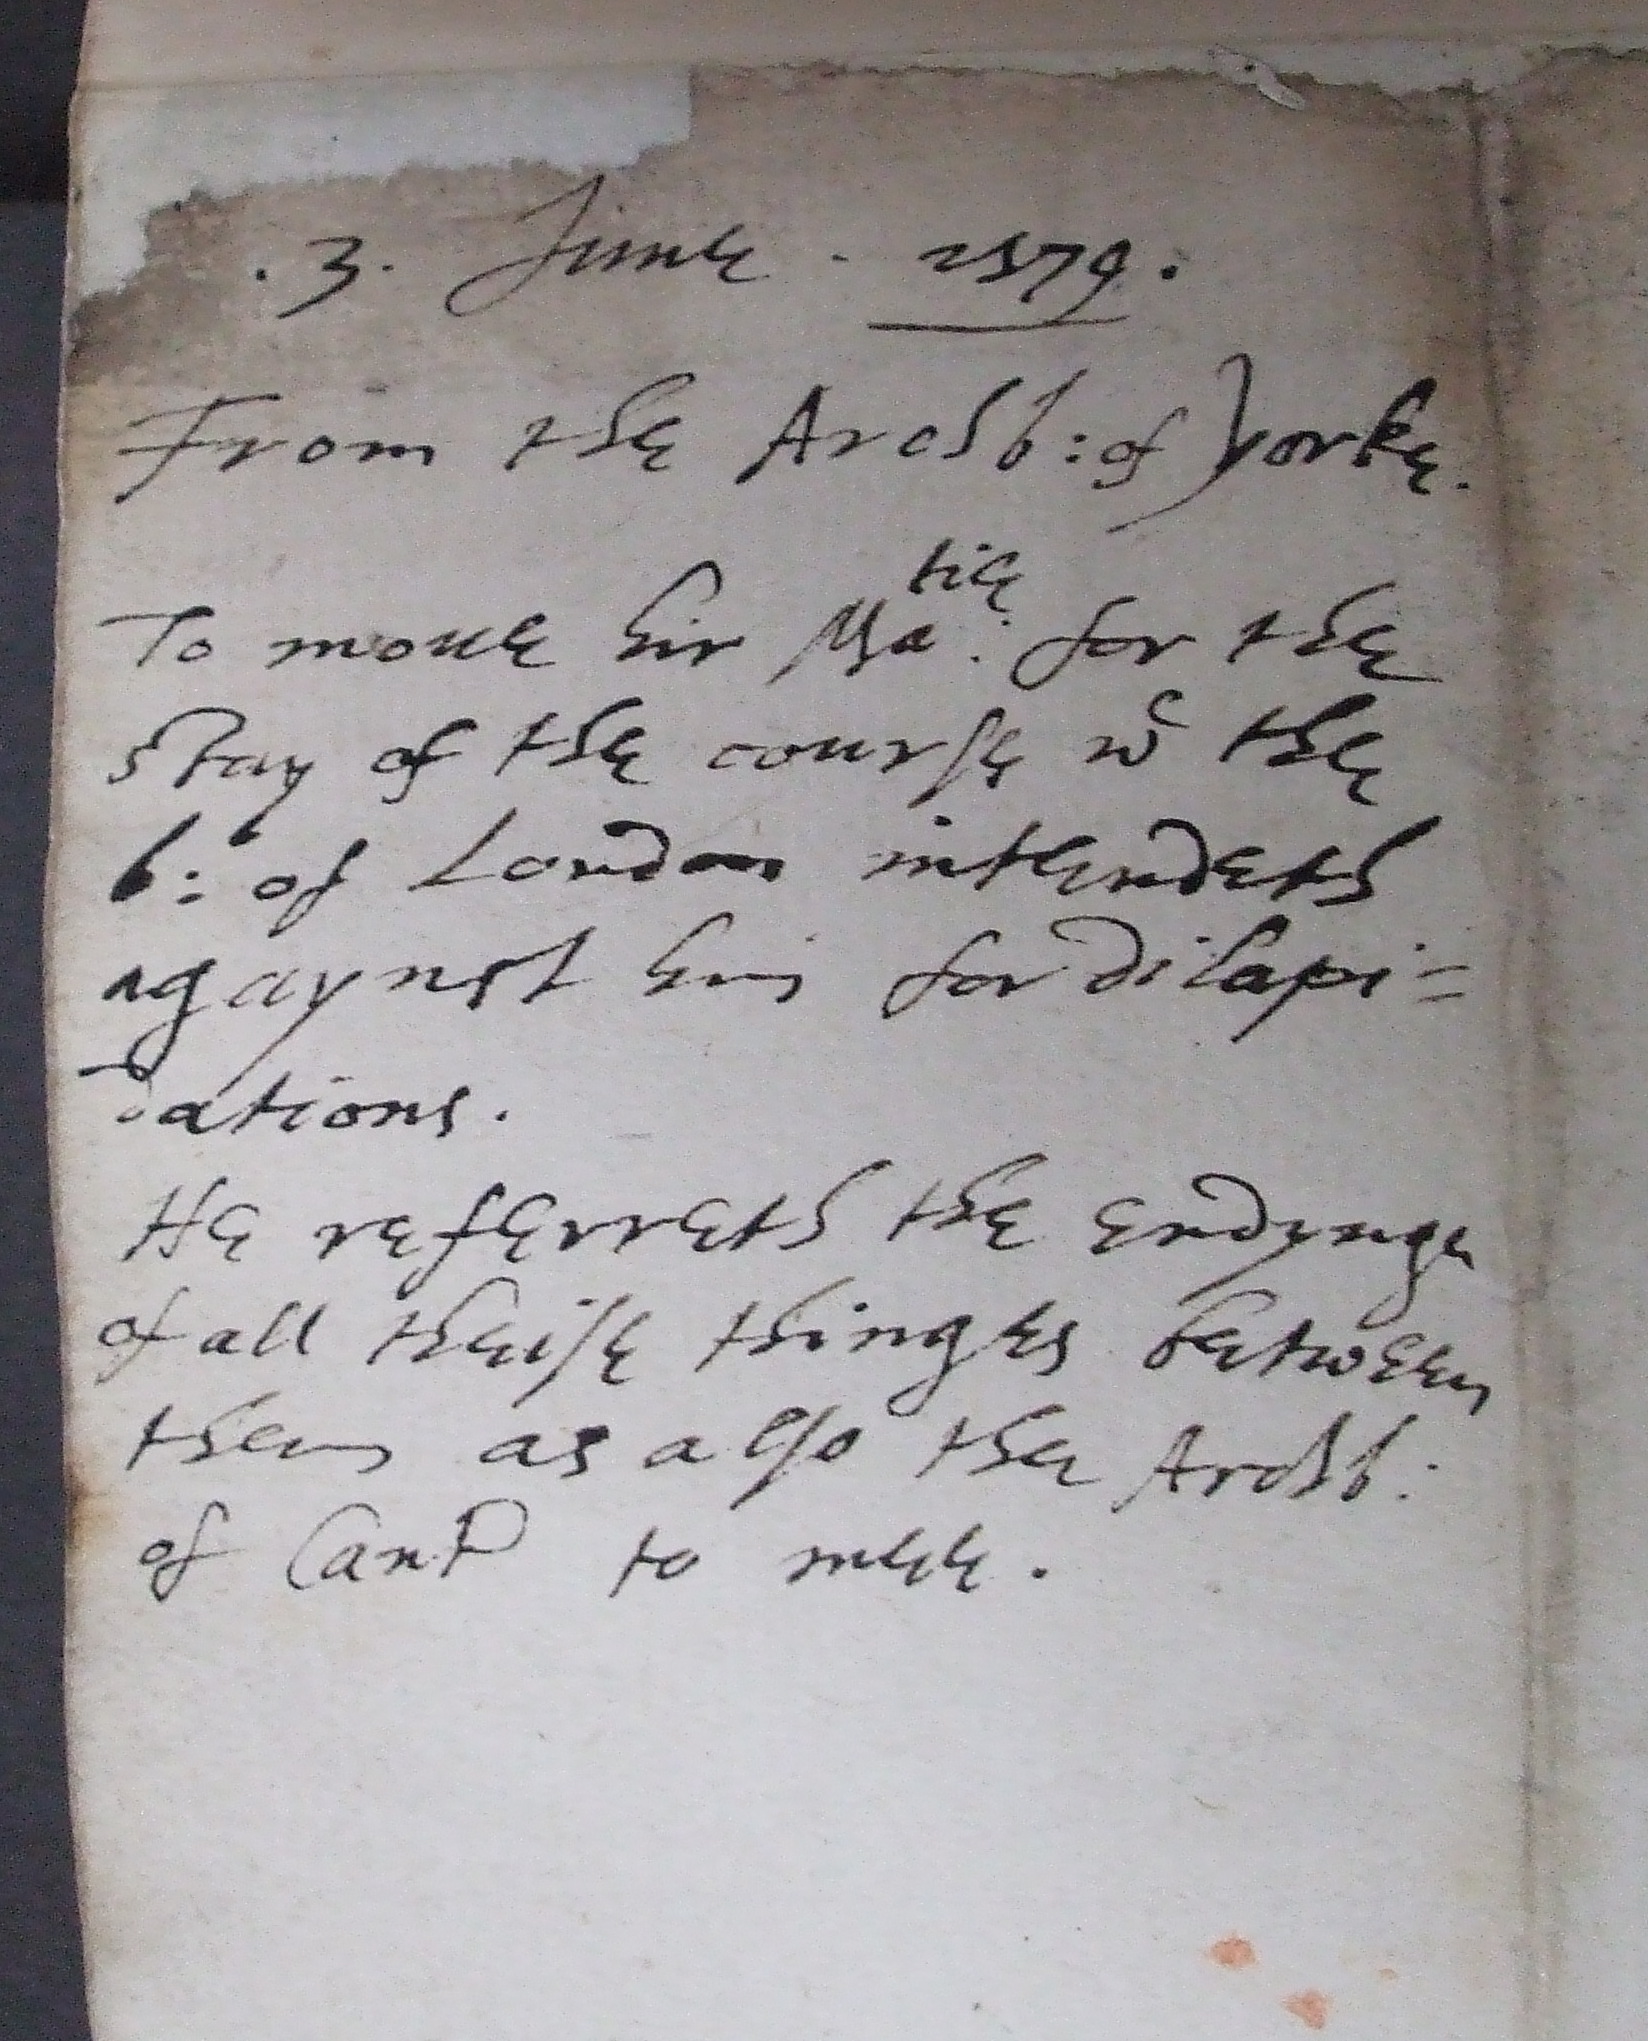 .3. Iune . 1579.
From the Archb: of Yorke.
To moue hir Ma^tie: for the
stay of the course w^c the
b: of London intendeth
agaynst him for dilapi=
dations.
He referreth the endynge
of all theise thinges betweene
them as also the Archb:
of Cant to mee.